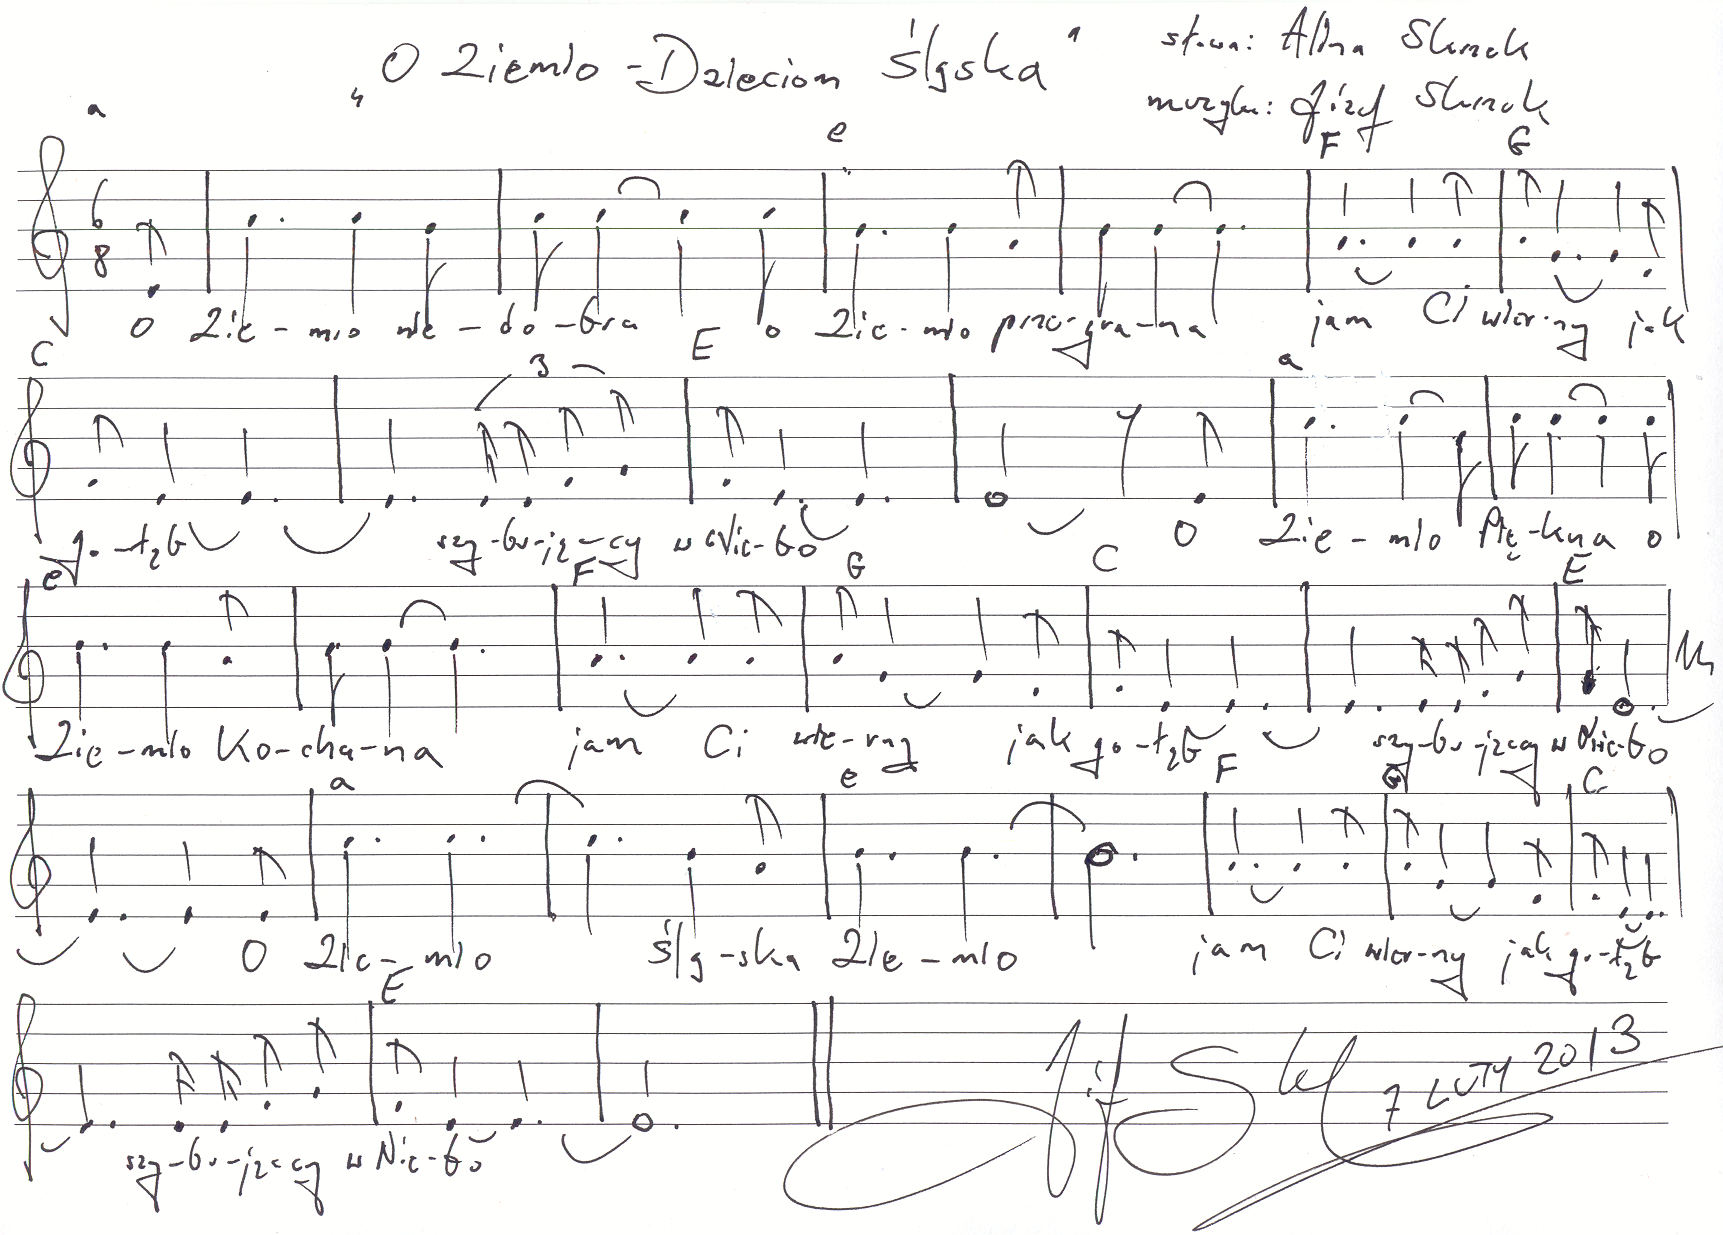 „O Ziemio - Dzieciom Śląska"
słowa: Alina Skurek
muzyka: Józef Skurek
a e F G
6
8
O Zie - mio nie - do - bra o Zie - mio prze - gra - na jam Ci wier - ny jak
C 3 E a
go - łąb szy - bu - ją - cy w Nie - bo O Zie - mio Pię - kna o
e F G C E
Zie - mio Ko - cha - na jam Ci wie - rny jak go - łąb szy - bu - jący w Nie - bo
a e F G C
O Zie - mio Ślą - ska Zie - mio jam Ci wier - ny jak go - łąb
E
szy - bu - jący w Nie - bo
7 LUTY 2013